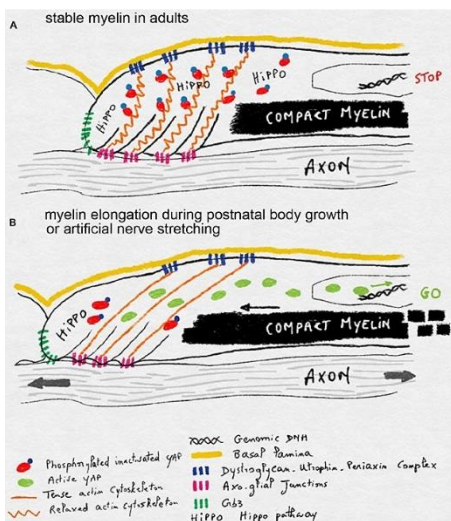 stable myelin in adults
A
HiPPO
HiPPO
HiPPO
STOP
COMPACT MYELIN
AXON
myelin elongation during postnatal body growth
B
or artificial nerve stretching
HiPPO
GO
COMPACT MYELIN
AXON
Phosphorylated inactivated YAP
Active YAP
Tense actin cytoskeleton
Relaxed actin cytoskeleton
Genomic DNA
Basal lamina
Dystroglycan_Utrophin_Periaxin Complex
Axo.glial Junctions
Crb3
HiPPO Hippo pathway